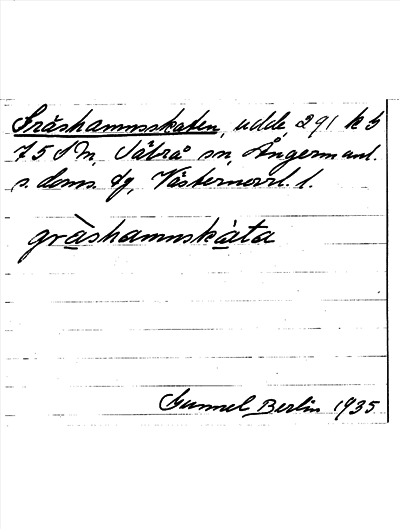 Gråshamnsskaten, udde, 291 k 5
75 S m, Säbrå sn, Ångermanl.
s. doms. fg, Västernorrl. l.
gràshamnskàta
Gunnel Berlin 1935